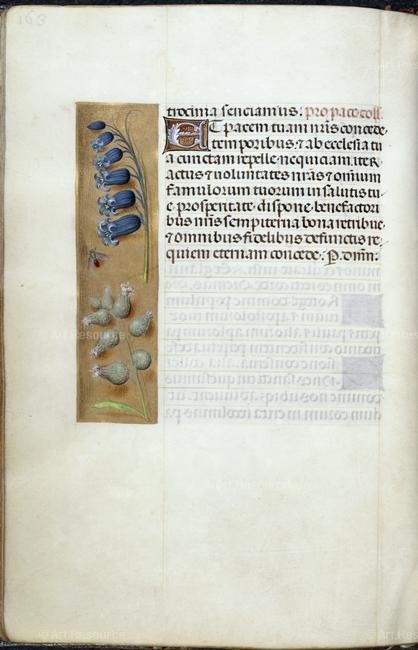 163
trocinia senciamus: pro pace coll.
Et pacem tuam nr̄is concede
temporibus: ⁊ ab ecclesia tu
a cunctam repelle nequiciam. iter.
actus ⁊ uoluntates nr̄as ⁊ omnium
famulorum tuorum in salutis tu
e prosperitate dispone. benefactori
bus nr̄is sempiterna bona retribue.
⁊ omnibus fidelibus defunctis re
quiem eternam concede. P. dom̄: